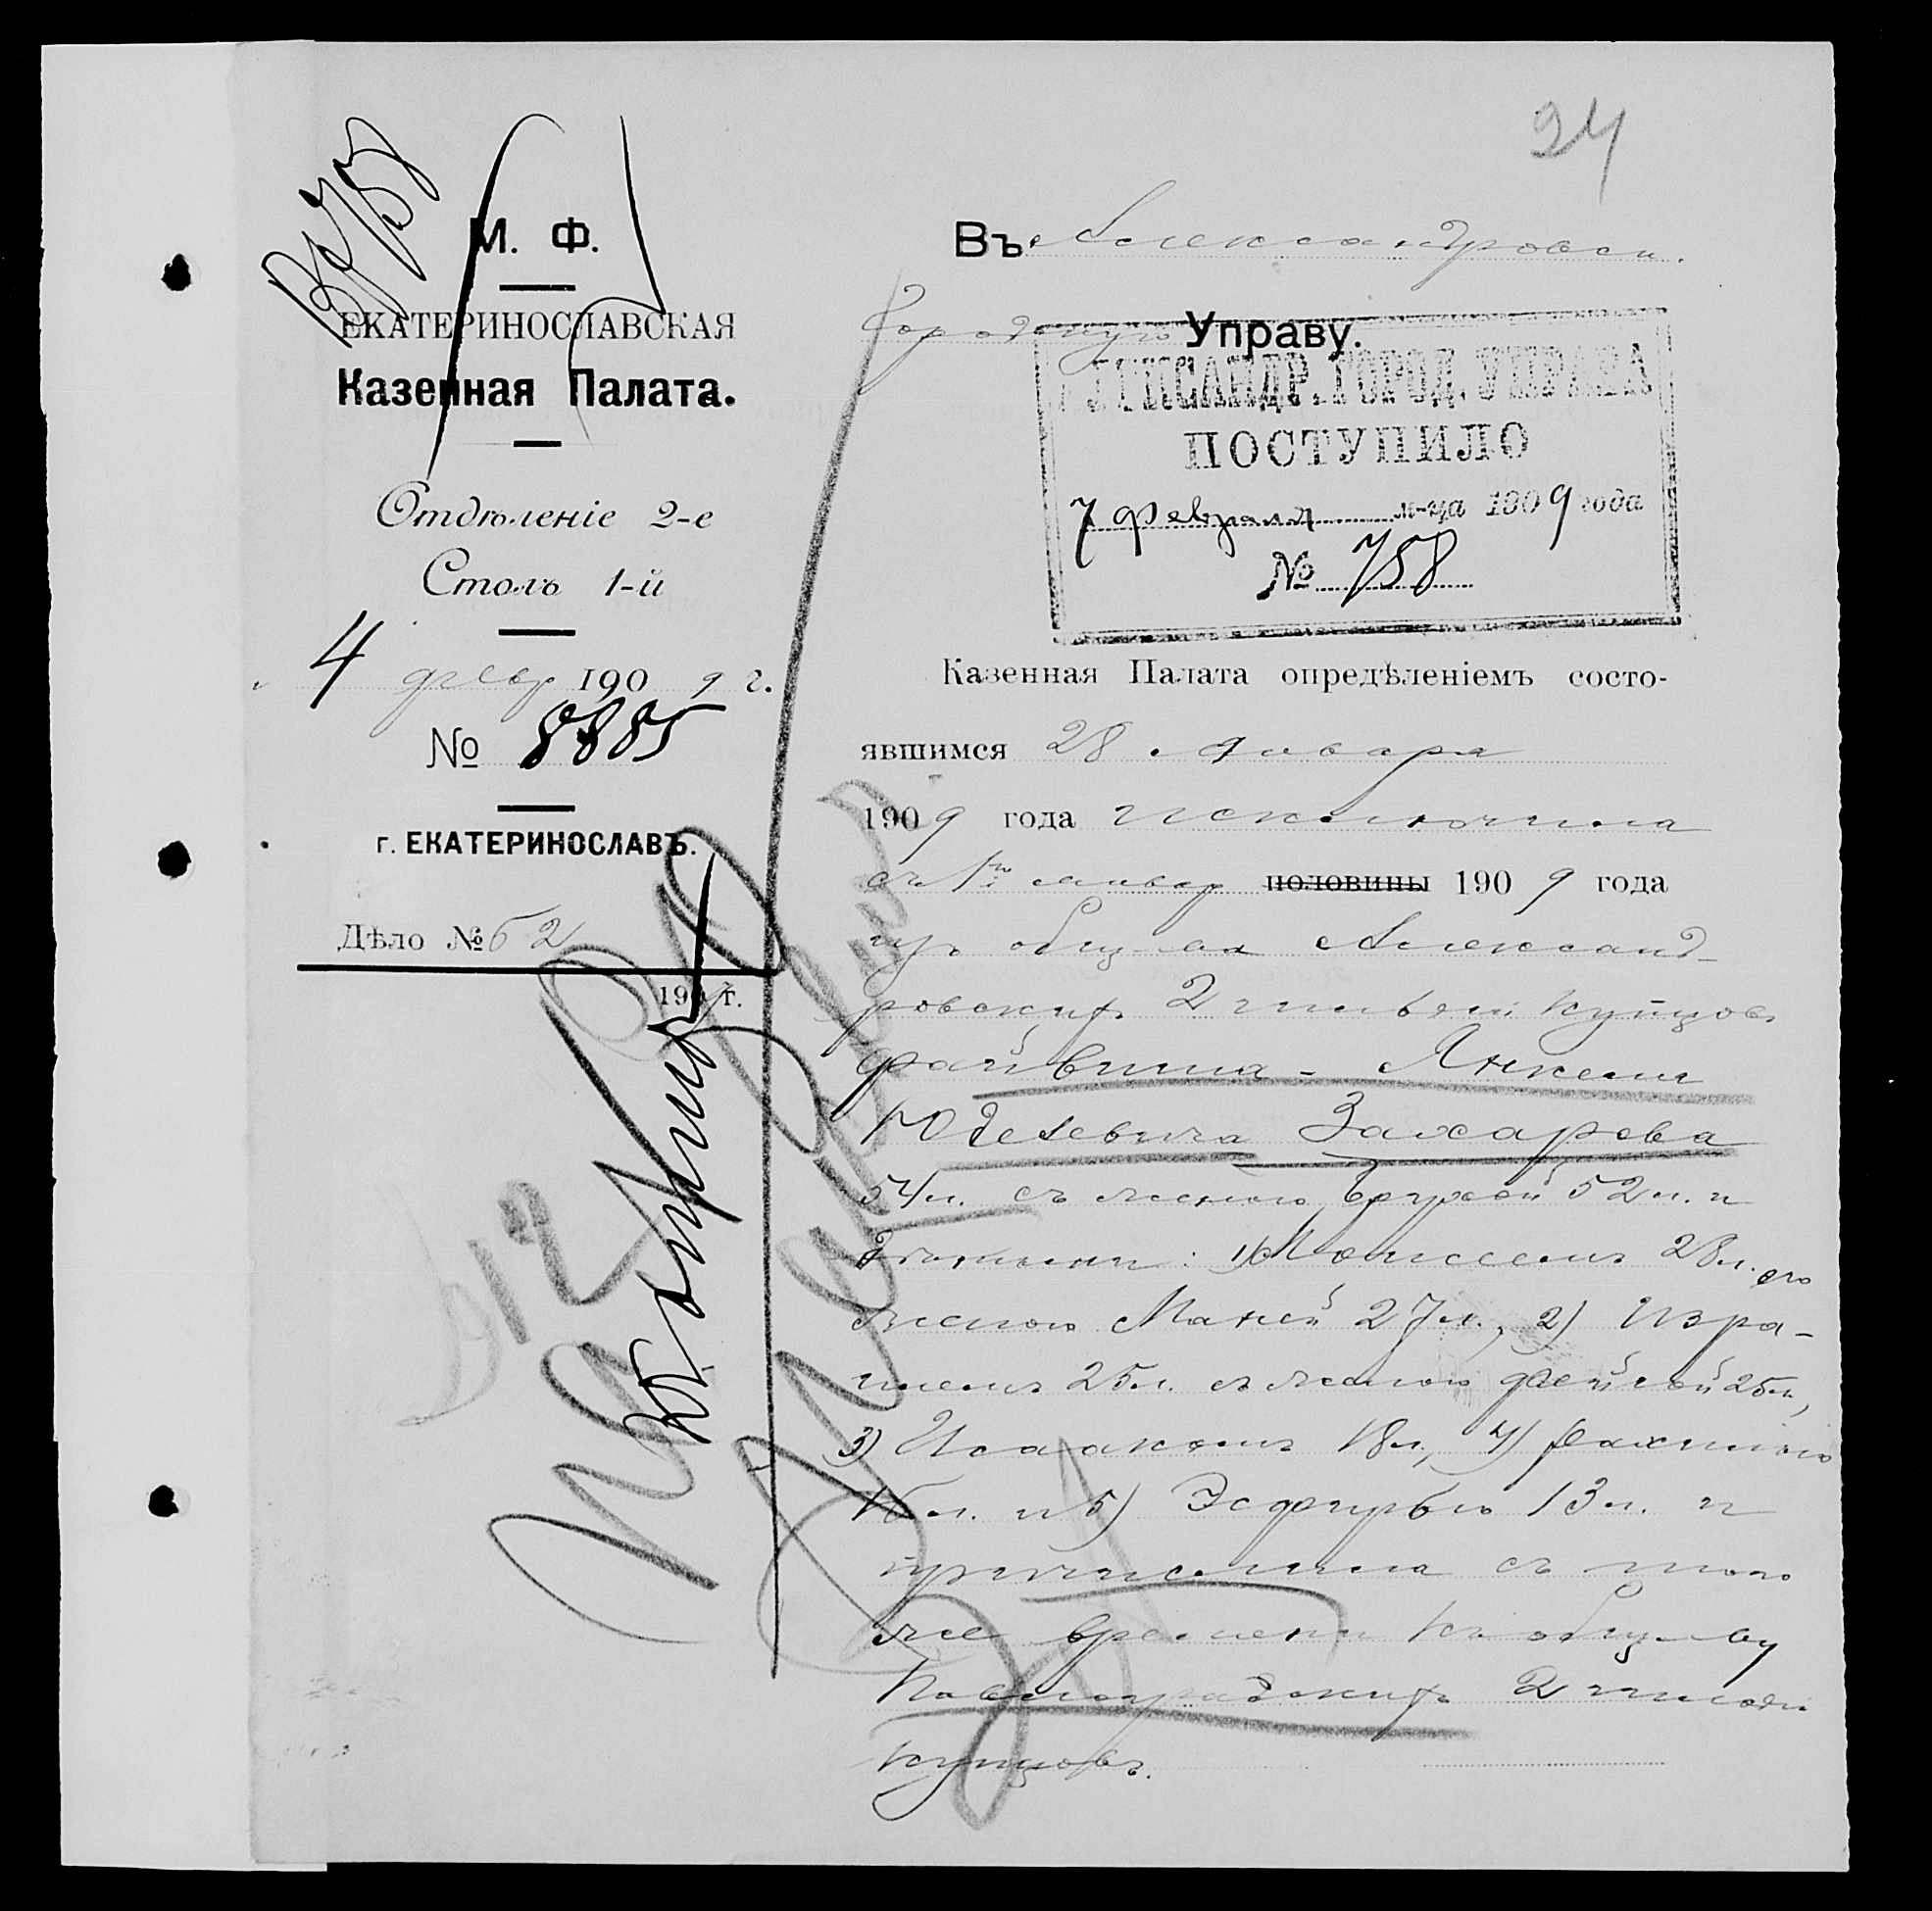 24
М. Ф.
ЕКАТЕРИНОСЛАВСКАЯ
Казенная Палата.
Отдѣленіе 2-е
Столъ 1-й
4 февр 1909 г.
№ 8885
г. ЕКАТЕРИНОСЛАВЪ.
Дѣло № 62
190 г.
Въ Александровск.
Городскую Управу.
АЛЕКСАНДР. ГОРОД. УПРАВА
ПОСТУПИЛО
7 февраля м-ца 1909 года
№ 758
Казенная Палата опредѣленіемъ состо-
явшимся 28 января
1909 года исключила
съ 1го январ половины 1909 года
изъ общ-ва Александ-
ровскихъ 2 гильдіи купцовъ
Файвиша-Янкеля
Юделевича Захарова
54 л. съ женою 52 л. и
дѣтьми: 1) Моисеемъ 28 л. его
женою Маней 27 л., 2) Изра-
илемъ 25 л. съ женою Фейгой 25 л,
3) Исаакомъ 18 л, 4) Рахилью
16 л. и 5) Эсфирью 13 л. и
причислила съ того
же времени къ общ-ву
Павлоградскихъ 2 гильдіи
купцовъ.